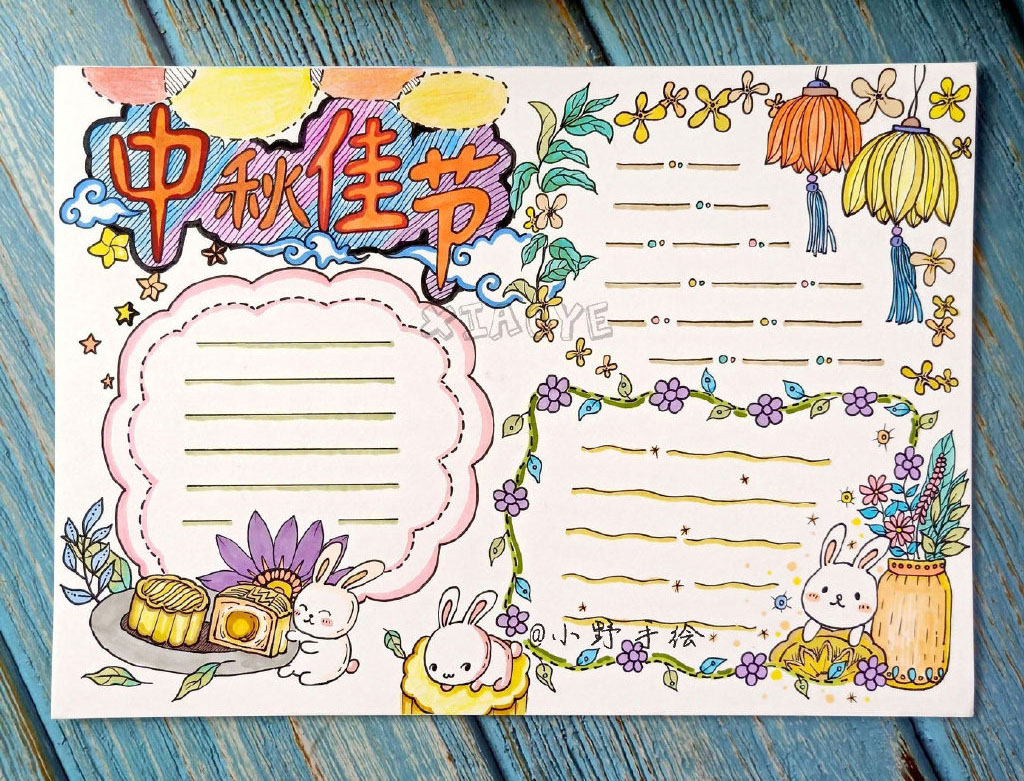 中秋佳节
XIAOYE
@小野手绘